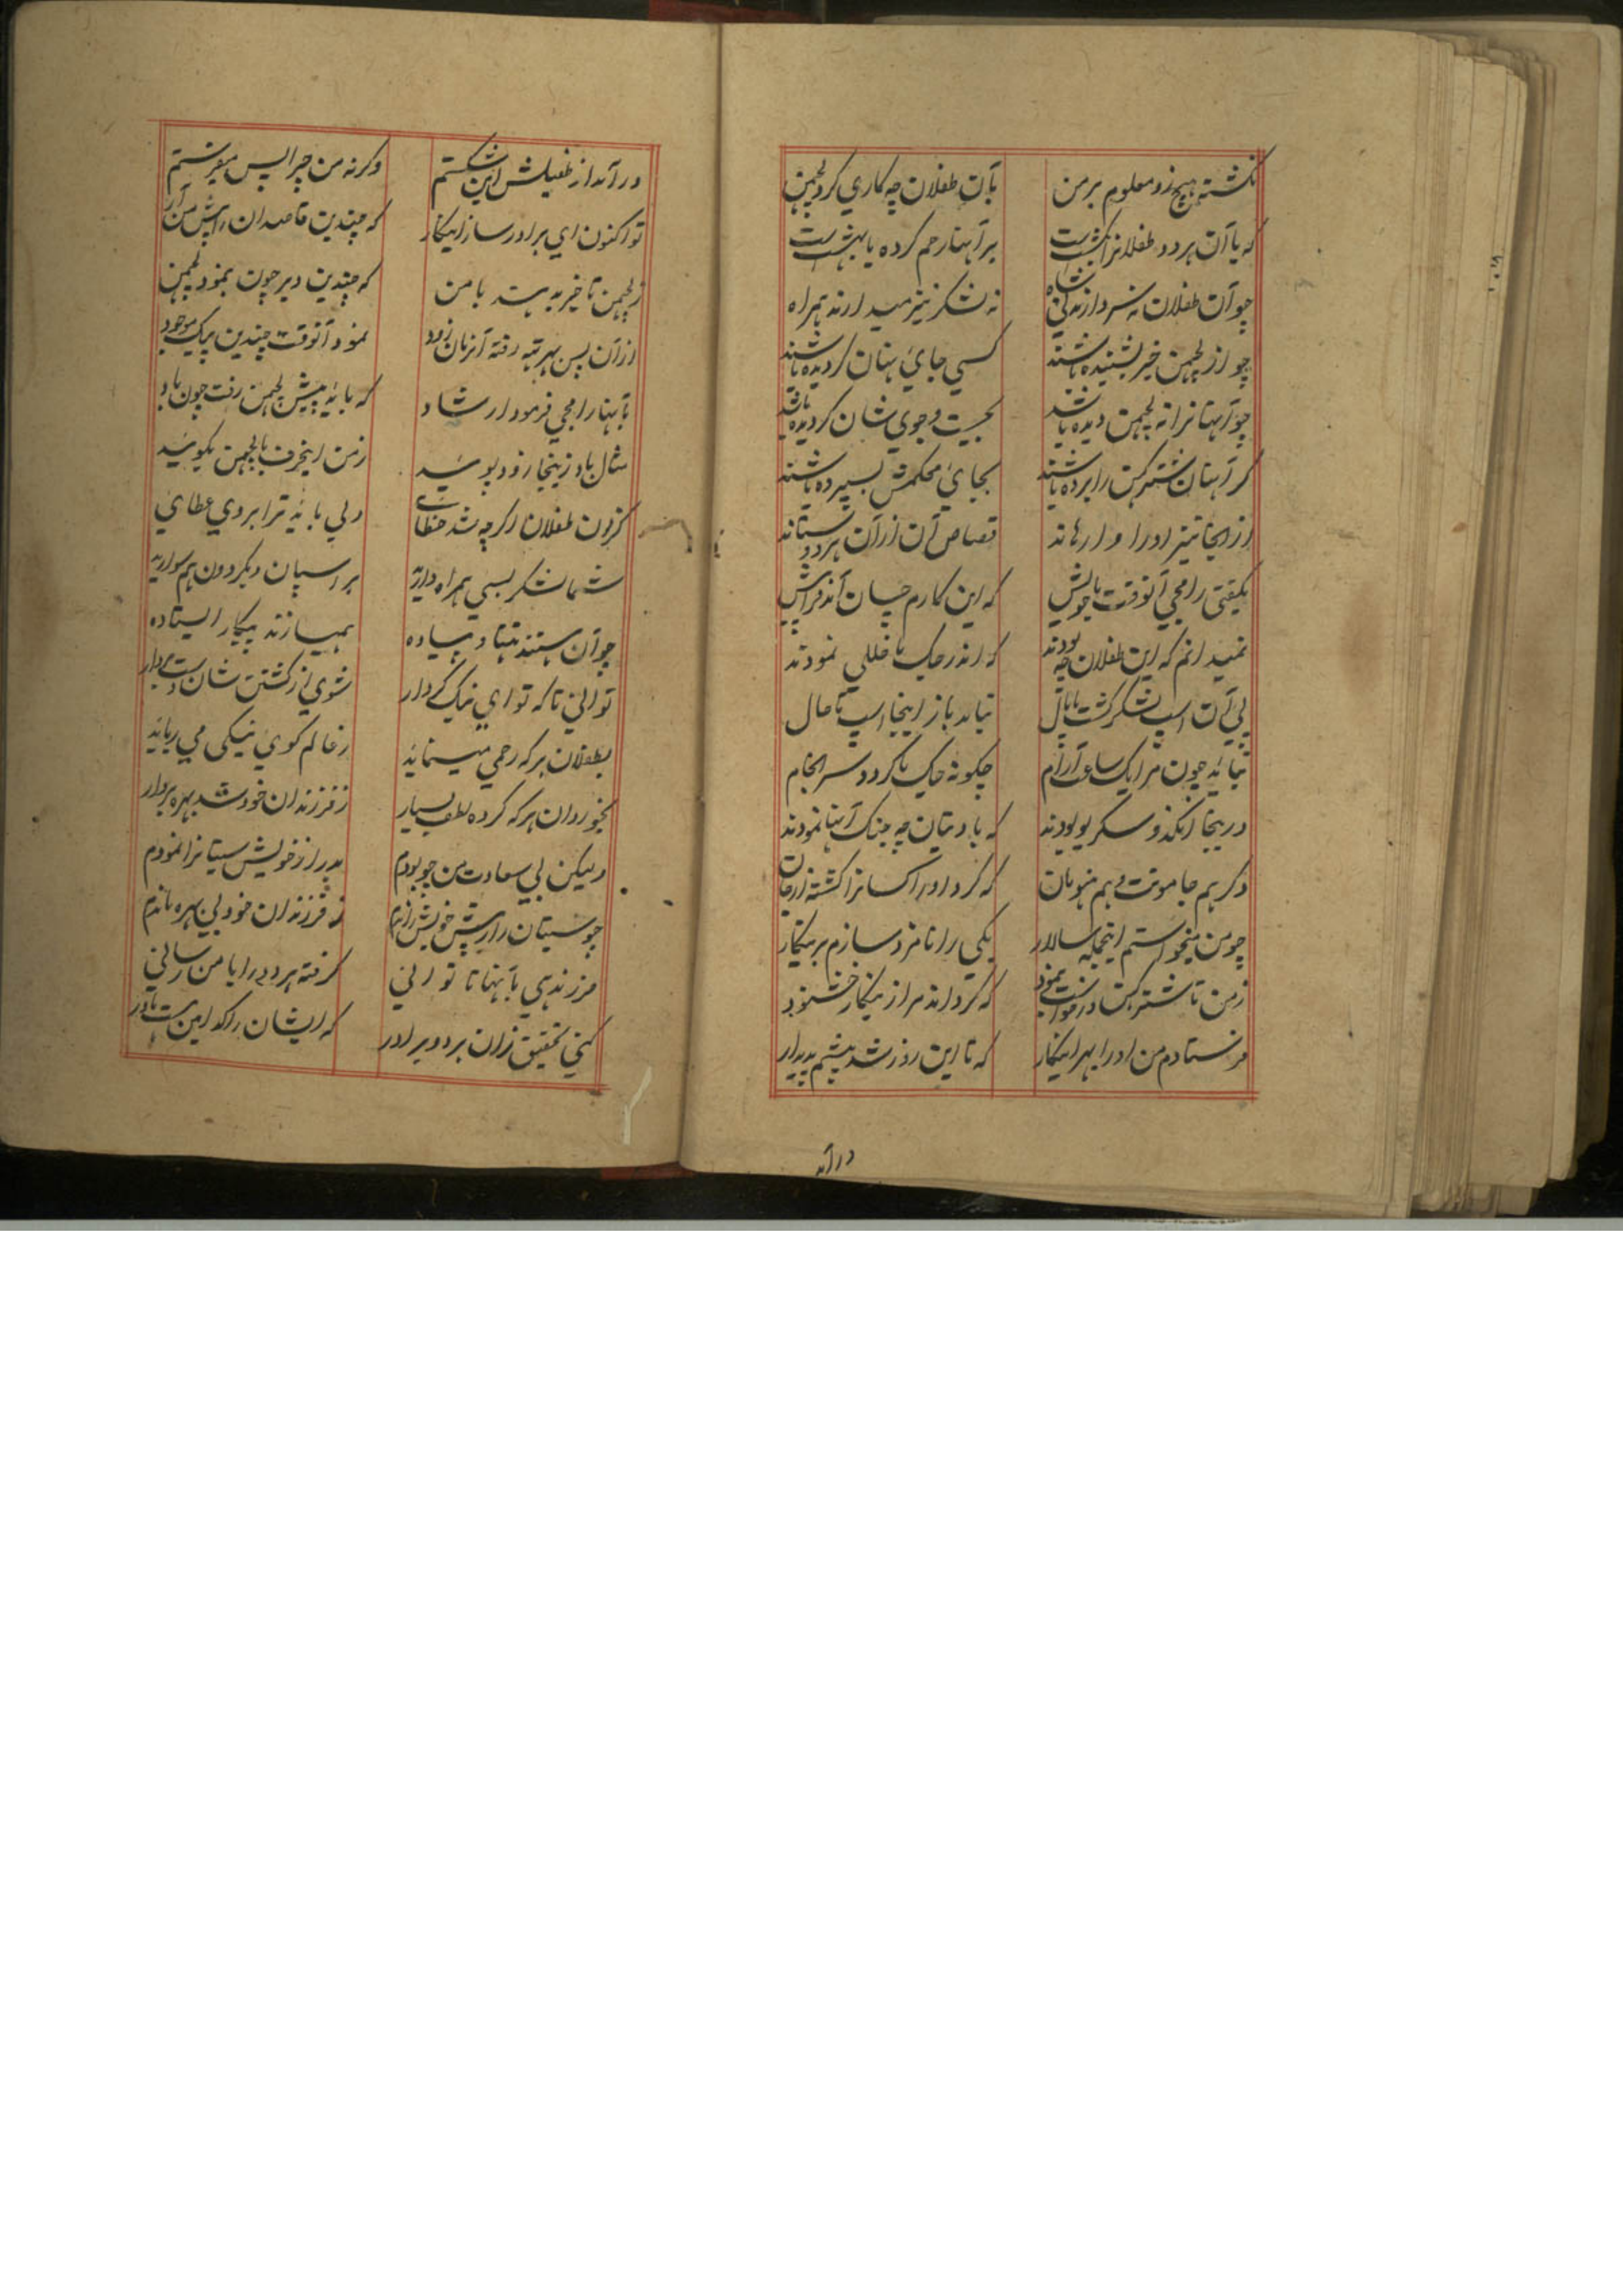 نکشته هیچ زو معلوم بر من بآن طفلان چه کاري کرد لچمن
که یا آن هر دو طفلانرا بکشت است بر آنها رحم کرده یا بهشت است
چو آن طفلان نه سردارند ني شاه نه لشکر نیز میدارند همراه
چو از لچمن خبر بشنیده باشند کسي جائي نهان کردیده باشند
چو آنها نرا نه لچمن دیده باشد بجست و جوي شان کردیده باشد
کر آنهان شترکهن را برده باشند بجائي محکمش بسپرده باشند
از انجا نیز او را وارهاند قصاص آن از آن هر دو ستاند
بکفتي رامجي آنوقت با خویش که این کارم چسان آمد فرا پیش
نمیدانم که این طفلان چه بودند که اندر جک با خللي نمودند
پي آن اسپ لشکر کشت پامال نیامد باز اینجا اسپ تا حال
نیاید چون مرا یک ساعت آرام چکونه جک با کردد سرانجام
دریجا انکذ و سکریو بودند که با دیتان چه جنک آنها نمودند
دکر هم جامونت و هم هنومان که کرد او راکسانرا کشته از جان
چو من میخواستم اینجا سالار یکي را نامزد سازم بر پیکار
ز من تا شترکهن درخواست بنمود که کرداند مرا زینکار خشنود
فرستادم من او را بهر اینکار که تا این روز شد پیشم پدیدار
درآمد
درآمد از طفیلش این شکستم وکرنه من چرا پس میفرستم
تو اکنون اي برادر ساز اینکار که چندین قاصدان را پیش من آر
ز لچمن تا خبر به رسد با من که چندین دیر چون بنمود لچمن
از آن پس بهرته رفته آنزمان زود نمود آنوقت چندین پیک موجود
بآنها رامجي فرمود ارشاد که باید پیش لچمن رفت چون باد
مثال باد زینجا زود پوئید ز من اینحرف با لچمن بکوئید
کزون طفلان اکرچه شد خطائي ولي باید ترا بروي عطائي
شما لشکر بسي همراه دارید بر اسپان و بکردون هم سوارید
چو آن هستند تنها و پیاده همیسازند پیکار ایستاده
تواني تا که تو اي نیک کردار شوي از کشتن شان دست بردار
بطفلان هر که رحمي مینماید ز عالم کوي نیکي مي رباید
بخوردان هر که کرده لطف بسیار ز فرزندان خود شد بهره بردار
ولیکن بي سعادت من چو بودم بدر از خویش سیتا نرا نمودم
چو سیتان را ز پیش خویش راندم ز فرزندان خود بي بهره ماندم
فرزندي بآنها تا تواني کرفته هر دو را با من رساني
کني تحقیق زان هر دو برادر که ایشان را کدامین است مادر